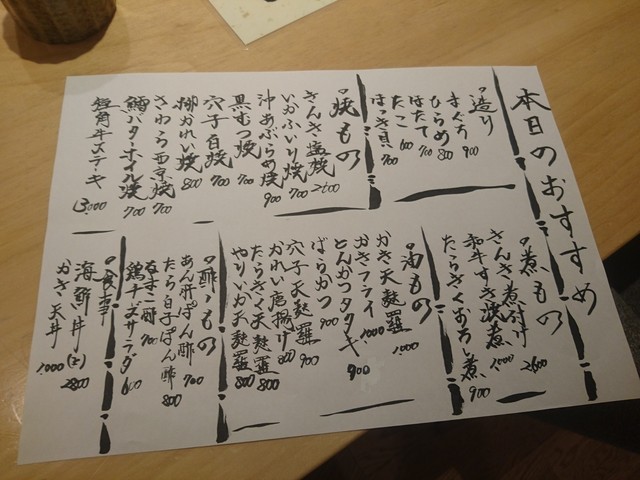 本日のおすすめ
造り
まぐろ 900
ひらめ 800
ほたて 700
たこ 600
ほっき貝 700
焼もの
きんき塩焼 2600
いかふいり焼 700
沖あぶらめ焼 900
黒むつ焼 700
穴子白焼 700
柳かれい焼 800
さわら西京焼 700
鱈バターホイル焼 700
短角牛ステーキ 3,000
煮もの
きんき煮付け 2600
和牛すき焼煮 1000
たらきくおろし煮 900
油もの
かき天麩羅 1000
かきフライ 1000
とんかつタタキ 900
ばらかつ 900
穴子天麩羅 900
かれい唐揚げ 800
たらきく天麩羅 800
やりいか天麩羅 800
酢もの
あん肝ぽん酢 700
たら白子ぽん酢 800
なまこ酢 700
鶏チーズサラダ 600
食事
海鮮丼 (上) 2800
かき天丼 1000